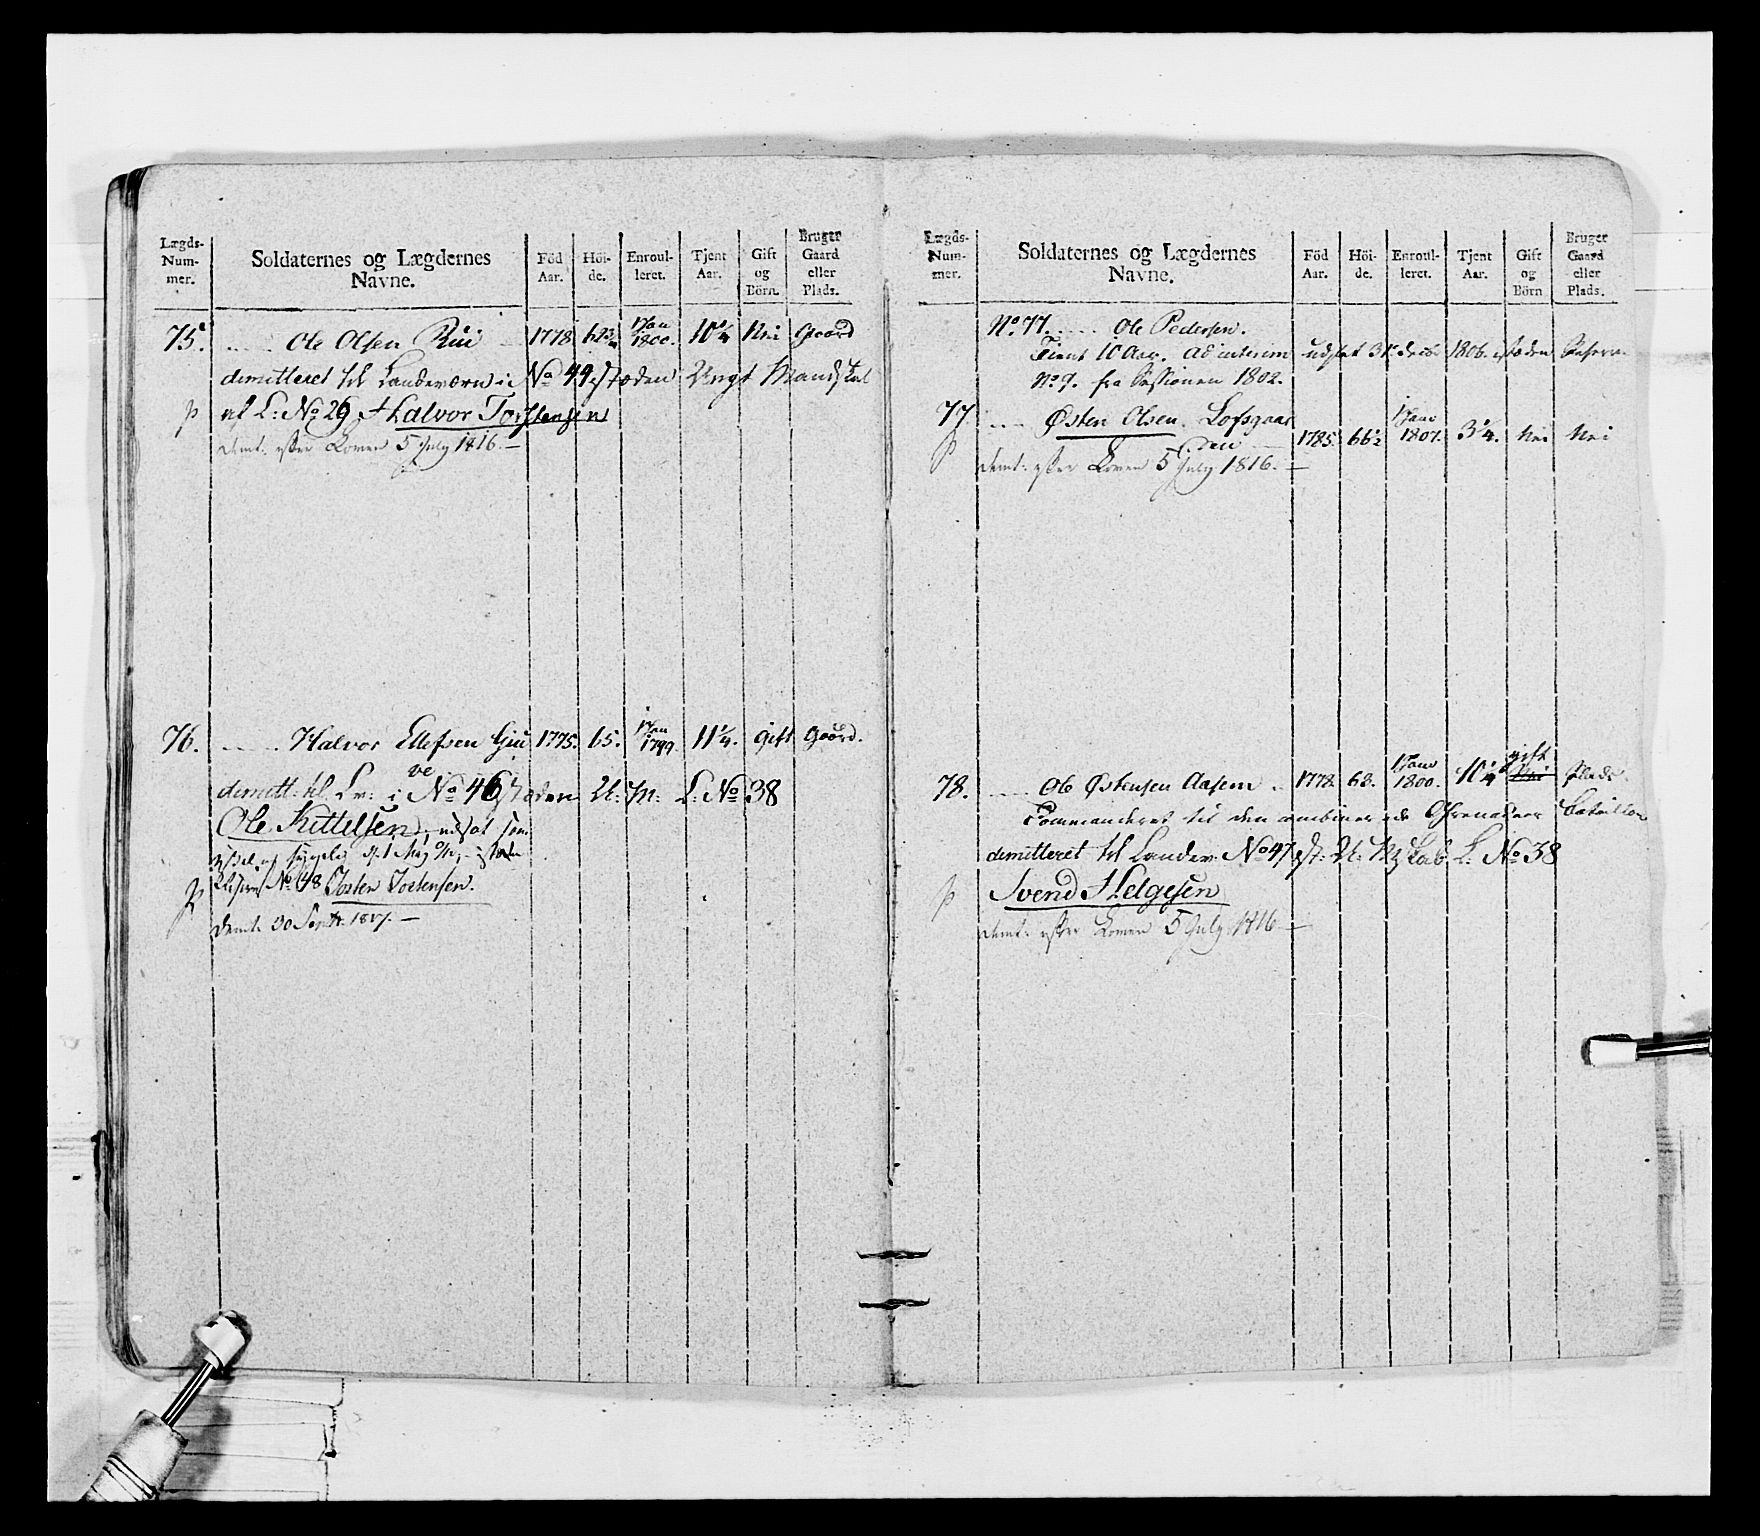 Lægds-Num-mer. Soldaternes og Lægdernes Navne. Föd Aar. Höi-de. Enroul-leret. Tjent Aar. Gift og Börn. Bruger Gaard eller Plads.
75. Ole Olsen Rui 1778 62 3/4 1 Jan 1800. 10 1/4 Nei Gaard
dimitteret til Landeværn i No 49 isteden Ungt Mandskab
af L: No 26 Halvor Torstensen
Dimt: efter Loven 5 July 1816. —
76. Halvor Ellefsen Giu 1775. 65. 1 Jan 1799. 11 1/4. gift Gaard.
dimitt: til Lve: i No 46 isteden U: M: L: No 38
Ole Kittelsen, udsat som
No 48 Josten Jostensen.
Dimt: 30 Septr. 1817. —
Lægds-Num-mer. Soldaternes og Lægdernes Navne. Föd Aar. Höi-de. Enroul-leret. Tjent Aar. Gift og Börn Bruger Gaard eller Plads.
No. 77. Ole Pedersen.
Tient 10 Aar. ad interim udsat 31 decbr 1806. isteden Reserv.
No. 9. fra Sessionen 1802.
77. Østen Olsen Lofsgaar
den 1785. 66 1/2 1 Janv 1807. 3 1/4. Nei Nei
Dimt: efter Loven 5 July 1816. —
78. Ole Østensen Aasem 1778. 68. 1 Janv 1800. 10 1/4 gift Nei Plads.
Commanderet til den Grenadeer Bataillon
dimitteret til Landev: No 47 ist: U: Mskab L: No 38
Svend Helgesen
Dimt: efter Loven 5 July 1816 —